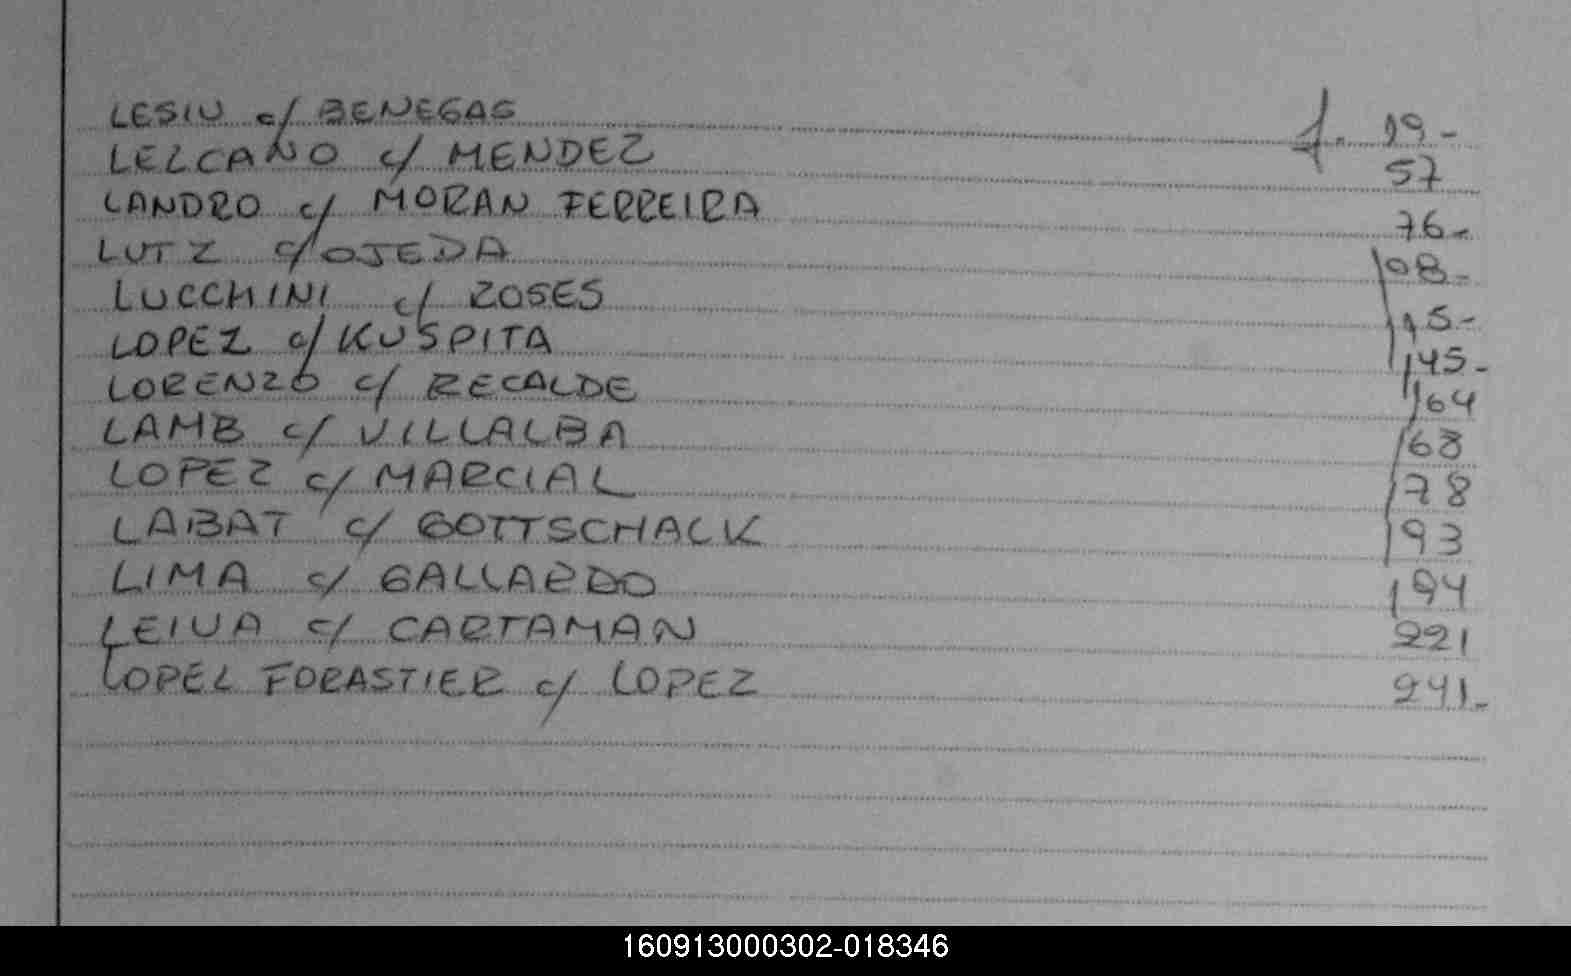 LESIU c/ BENEGAS f. 19-
LEZCANO c/ MENDEZ 57
LANDRO c/ MORAN FERREIRA 76-
LUTZ c/ OJEDA 108-
LUCCHINI c/ ROSES 115-
LOPEZ c/ KUSPITA 145-
LORENZO c/ RECALDE 164
LAMB c/ VILLALBA 168
LOPEZ c/ MARCIAL 178
LABAT c/ GOTTSCHALK 193
LIMA c/ GALLARDO 194
LEIVA c/ CARTAMAN 221
LOPEZ FORASTIER c/ LOPEZ 241-
160913000302-018346